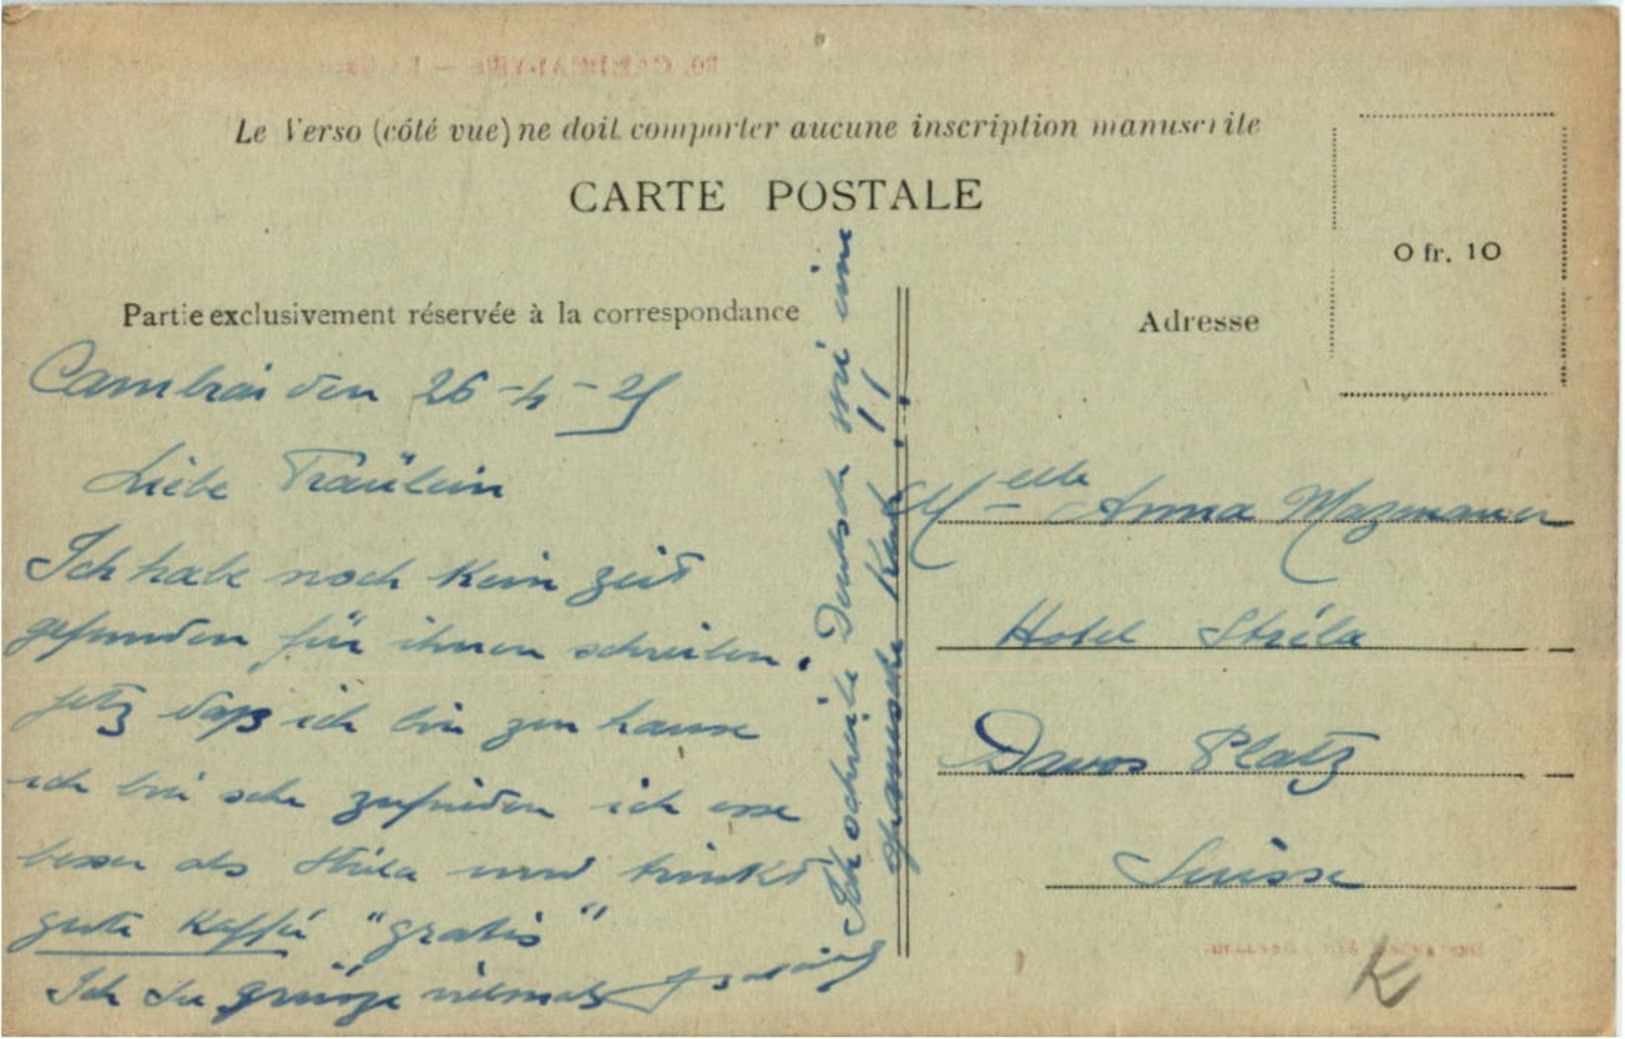 Le Verso (côté vue) ne doit comporter aucune inscription manuscrite
CARTE POSTALE
0 fr. 10
Partie exclusivement réservée à la correspondance
Adresse
Cambrai den 26-4-25
Liebe Fräulein
Ich habe noch kein zeit
gefunden für ihnen schreiben.
Jetz daß ich bin zu hause
ich bin sehr zufrieden ich esse
besser als Stréla und trinkt
gute Kaffé "gratis"
Ich Sie grüsse vielmals
Ich schreibe Deutsch wie eine
spanische Kuh !!
Melle Anna Mazenauer
Hotel Stréla
Davos Platz
Suisse
K